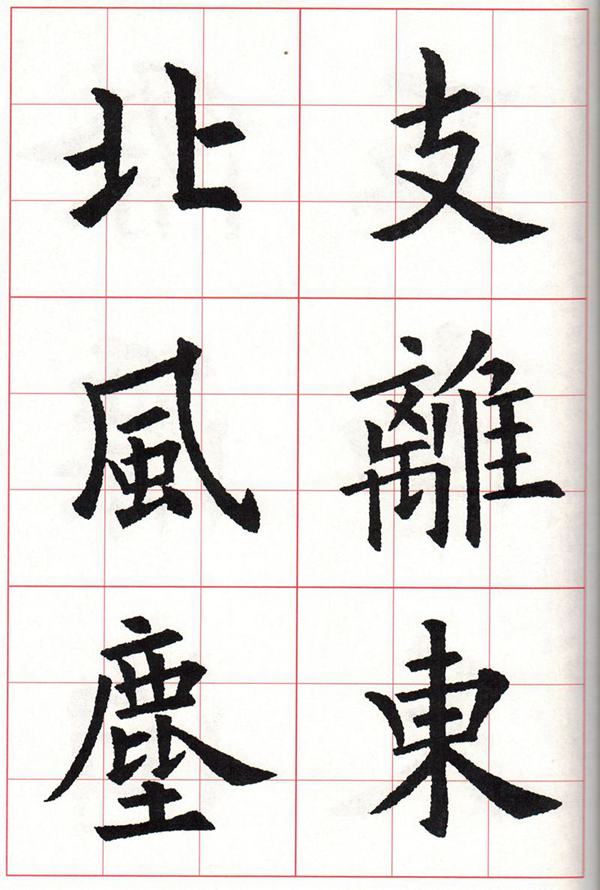 支離東
北風塵